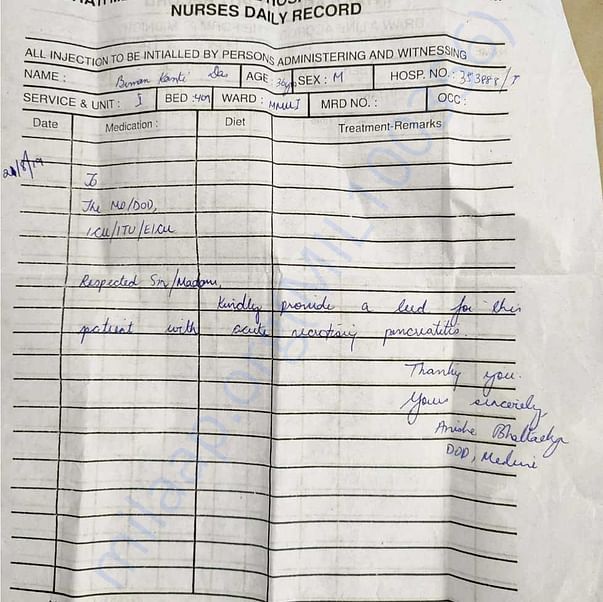 NURSES DAILY RECORD
ALL INJECTION TO BE INTIALLED BY PERSONS ADMINISTERING AND WITNESSING
NAME : Biman Kanti Das AGE : 36yrs SEX : M HOSP. NO. : 353888/
SERVICE & UNIT : I BED : 401 WARD : MMWI MRD NO. : OCC :
Date Medication : Diet Treatment-Remarks
To
The MO/DOD,
ICU/ITU/EICU
Respected Sir/Madam,
Kindly provide a bed for this
patient with acute necrotising pancreatitis.
Thank you.
Yours sincerely,
DOD, Medicine
milaap.org